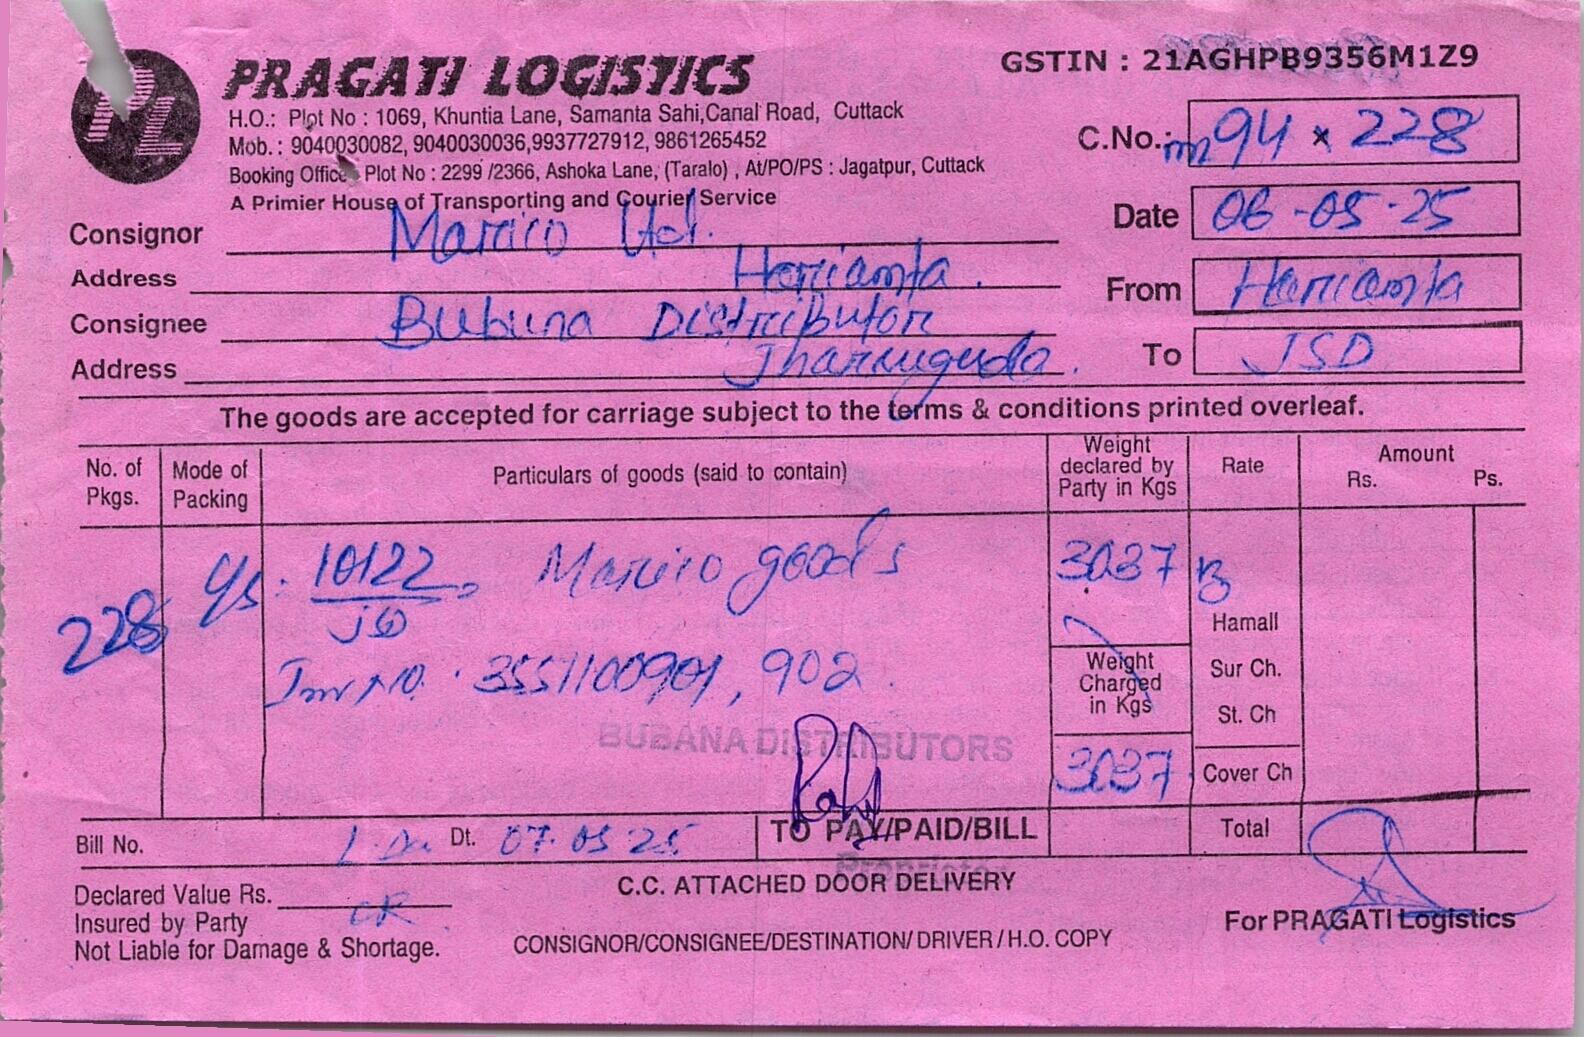 PL
PRAGATI LOGISTICS
GSTIN : 21AGHPB9356M1Z9
H.O.: Plot No : 1069, Khuntia Lane, Samanta Sahi,Canal Road, Cuttack
Mob. : 9040030082, 9040030036,9937727912, 9861265452
Booking Office Plot No : 2299 /2366, Ashoka Lane, (Taralo) , At/PO/PS : Jagatpur, Cuttack
A Primier House of Transporting and Courier Service
C.No.: 94 x 228
Date 06-05-25
Consignor Marico Ltd.
Address Hariamta.
From Hariamta
Consignee Bubuna Distributor
Address Jharsuguda.
To JSD
The goods are accepted for carriage subject to the terms & conditions printed overleaf.
No. of Pkgs. Mode of Packing Particulars of goods (said to contain) Weight declared by Party in Kgs Rate Amount Rs. Ps.
228 10122 Marico goods 3037
Hamall
Inv No. 3551100901, 902
Weight Charged in Kgs
Sur Ch.
St. Ch
BUBANA DISTRIBUTORS
3037 Cover Ch
Bill No. Dt. 07.05 25 TO PAY/PAID/BILL Total
Proprietor
Declared Value Rs.
C.C. ATTACHED DOOR DELIVERY
Insured by Party
For PRAGATI Logistics
Not Liable for Damage & Shortage.
CONSIGNOR/CONSIGNEE/DESTINATION/ DRIVER / H.O. COPY